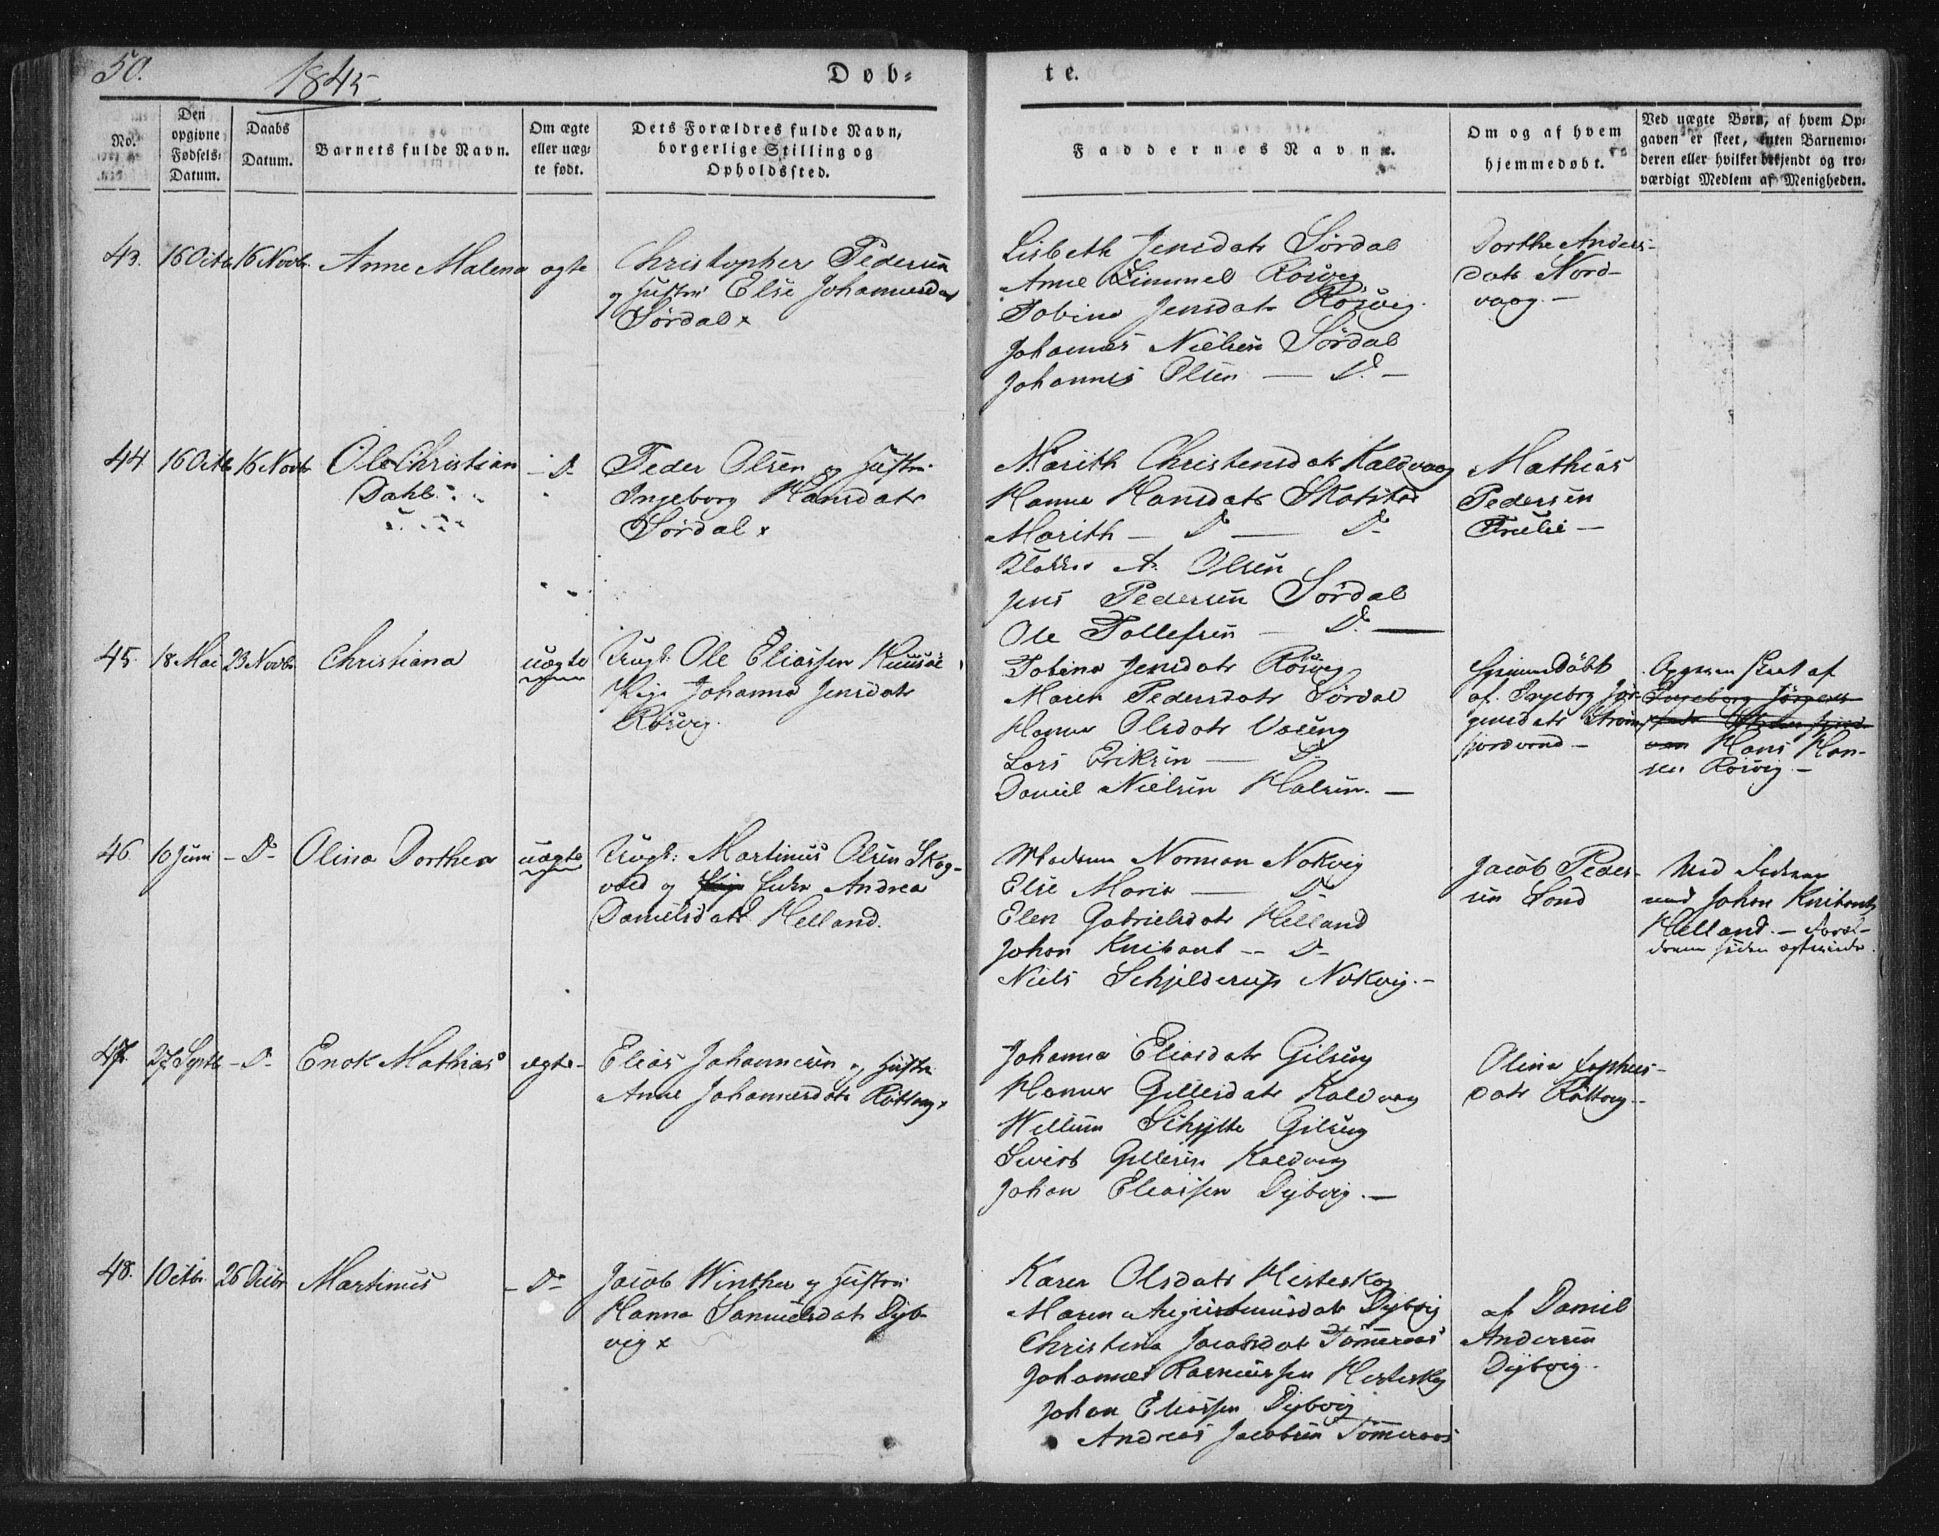 50.
1845
Døb-
te.
No.
Den
opgivne
Fødsels-
Datum.
Daabs
Datum.
Barnets fulde Navn.
Om ægte
eller uæg-
te født.
Dets Forældres fulde Navn,
borgerlige Stilling og
Opholdssted.
Faddernes Navne.
Om og af hvem
hjemmedøbt.
Ved uægte Børn, af hvem Op-
gaven er skeet, enten Barnemo-
deren eller hvilket bekjendt og tro-
værdigt Medlem af Menigheden.
43. 16 Octb 16 Novbr. Anne Malena ægte
Christopher Pedersen
og Hustru Else Johannesdat
Sørdal x
Lisbeth Jensdatr Sørdal
Anne Kimmel Røsvig
Tobina Jensdatr Røsvig
Johannes Nielsen Sørdal
Johannes Olsen — Do —
Dorthe Anders-
datr Nord-
vaag. —
44 16 Octb 16 Novbr Ole Christian
Dahl
- Do
Peder Olsen og Hustru
Ingeborg Hansdatr
Sørdal x
Marith Christensdatr Kaldvaag
Hanne Hansdatr
Marith — Do — Do
Klokker A. Olsen
Jens Pedersen Sørdal
Ole Tollefsen — Do —
Mathias
Pedersen
45. 18 Mai 23 Novbr. Christiana uægte
Ungk: Ole Eliassen
Pige Johanna Jensdatr
Røsvig.
Tobina Jensdatr Røsvig
Maren Pedersdatr Sørdal
Hanna Olsdatr
Lars Eriksen — Do
Daniel Nielsen Halsen. —
Hjemmedøbt
af Ingeborg Jør-
gensdatr Strøm-
fjordvand —
Opgaven skeet af
Ingeborg Jørgens-
Hans Han-
sen Røsvig —
46 10 Juni - Do Olina Dorthea uægte
Ungk: Martinus Olsen Skog-
vold og Enke Andrea
Danielsdatr Helland.
Madam Norman Nokvig
Else Maria — Do
Elen Gabrielsdatr Helland
Johan Knibant — Do
Niels Schjelderup Nokvig. —
Jacob Peder-
sen Sond
Ved Faderen
med Johan Knibants
Helland. — Foræl-
47. 27 Septb - Do Enok Mathias ægte -
Elias Johannesen og Hustru
Anne Johannesdatr
Johanna Eliasdatr
Hanna Gillesdatr Kaldvaag
Willum Schytte
Sivert Gillesen Kaldvaag
Johan Eliassen Dybvig. —
Olina
datr
48. 1 Octbr. 26 Decbr Martinus - Do -
Jacob Winther og Hustru
Hanna Samuelsdatr Dyb-
vig x
Karen Olsdatr Hesteskog
Maren Augustinusdatr Dybvig
Christina Jacobsdat Tømeraas
Johannes Rasmussen Hesteskog
Johan Eliassen Dybvig
Andreas Jacobsen Tømeraas
af Daniel
Andersen
Dybvig.